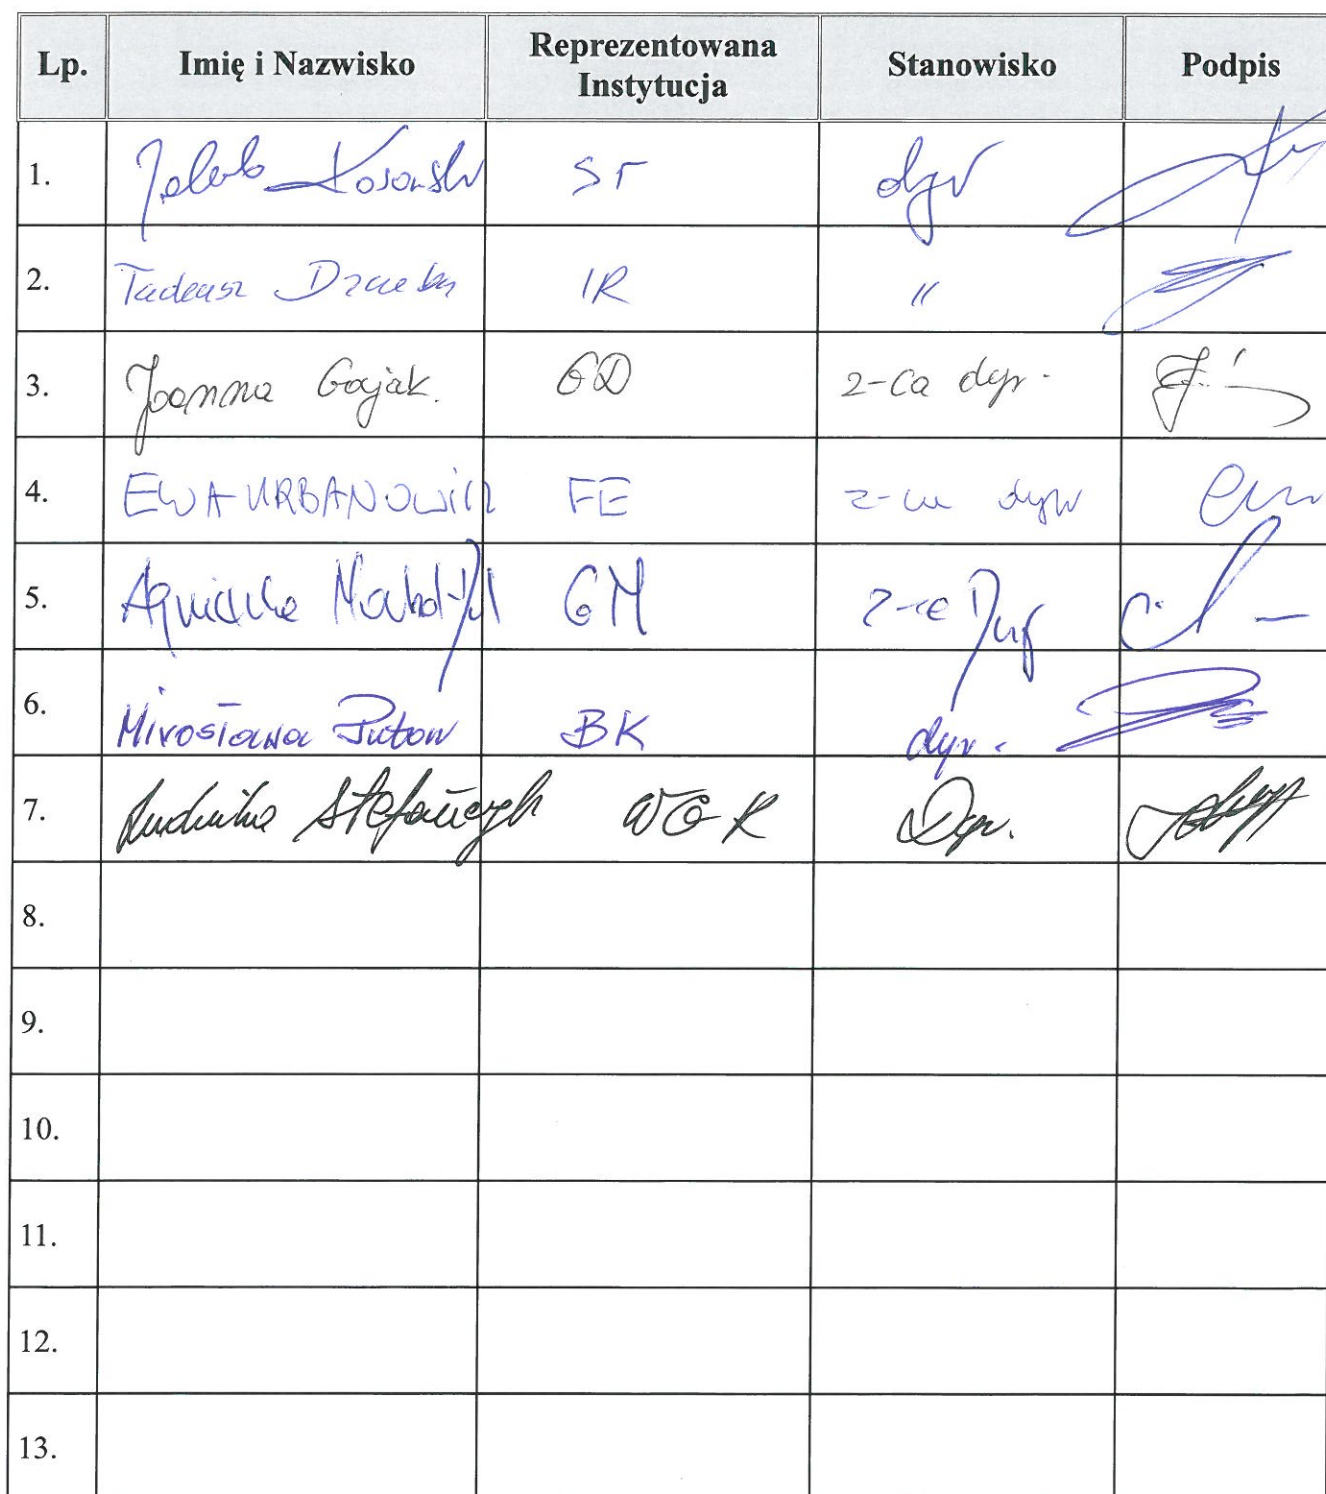 Lp. Imię i Nazwisko Reprezentowana Instytucja Stanowisko Podpis
1. Jakub Kosowski ST dyr
2. Tadeusz IR "
3. Joanna Gajak. GD z-ca dyr.
4. EWA URBANOWICZ FE z-ca dyr
5. Agnieszka GM z-ca Dyr
6. Mirosława Puton BK dyr.
7. Ludmiła Stefańczyk WGK Dyr.
8.
9.
10.
11.
12.
13.